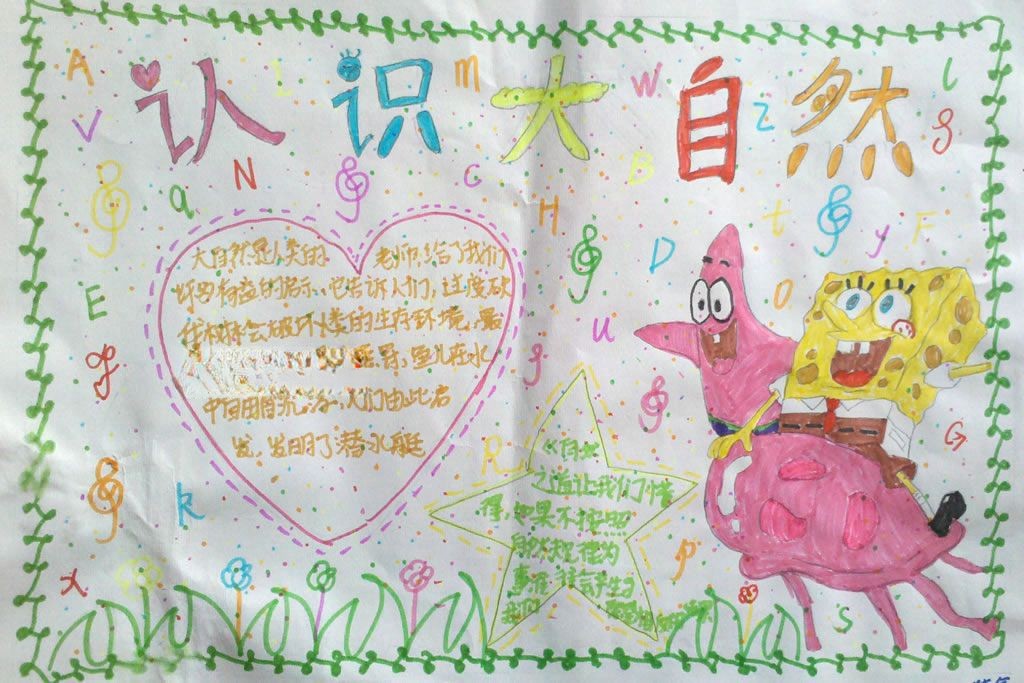 认识大自然
A
L
m
W
Z
l
V
N
C
B
g
a
H
t
y
F
D
E
O
u
G
R
k
x
p
S
大自然是人类的 老师,给了我们
许多有益的启示,也告诉人们,过度砍
伐树林会破坏人类的生存环境,最
鱼儿在水
中自由自在 人们由此启
发,发明了潜水艇
《自然
之道》让我们懂
得,如果不按照
自然规律为
事准 往往会产生与
我们